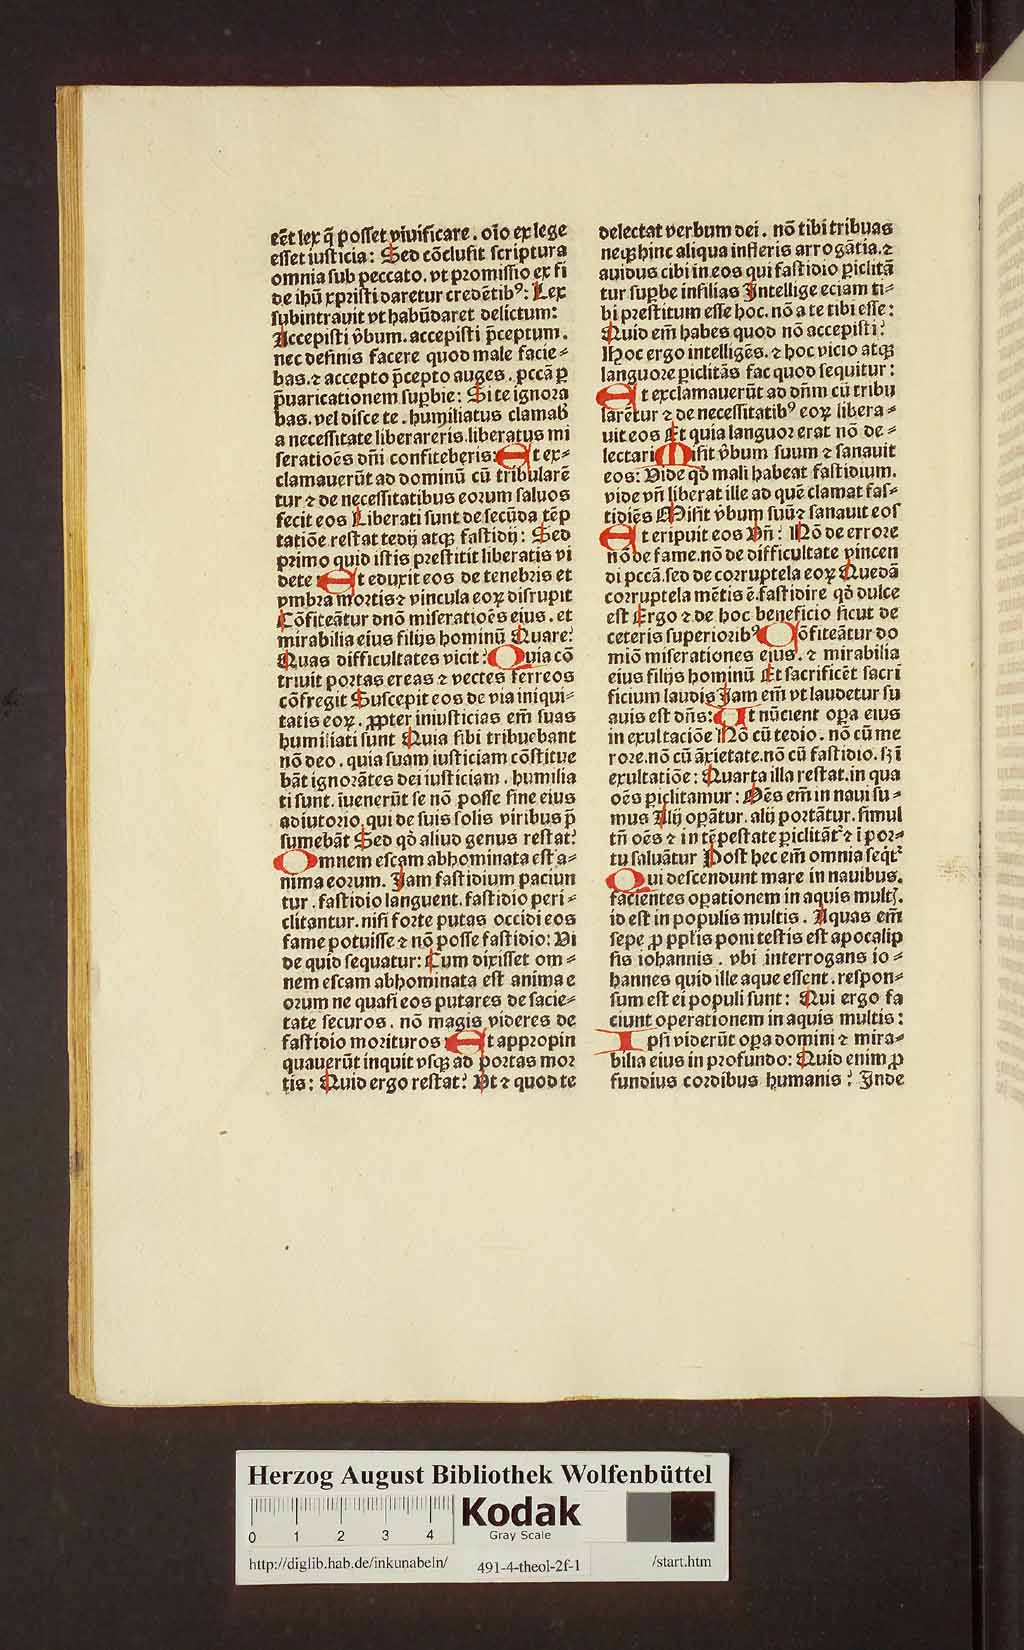 eẽt lex q̃ posset viuificare. oĩo ex lege
esset iusticia: Sed cõclusit scriptura
omnia sub peccato. vt promissio ex fi
de ihũ xpristi daretur credẽtibꝰ: Lex
subintrauit vt habũdaret delictum:
Accepisti v̂bum. accepisti p̃ceptum.
nec definis facere quod male facie⸗
bas. ⁊ accepto p̃cepto auges. pccã ꝑ
p̃uaricationem suꝑbie: Si te ignora
bas. vel disce te. humiliatus clamab̃
a necessitate liberareris. liberatus mi
seratioẽs dñi confiteberis: Et ex⸗
clamauerũt ad dominũ cũ tribularẽ
tur ⁊ de necessitatibus eorum saluos
fecit eos Liberati sunt de secũda tẽp
tatiõe restat tedij atqꝫ fastidij: Sed
primo quid istis prestitit liberatis vi
dete Et eduxit eos de tenebris et
vmbra mortis ⁊ vincula eoꝝ disrupit
Cõfiteãtur dnõ miseratioẽs eius. et
mirabilia eius filijs hominũ Quare?
Quas difficultates vicit? Quia cõ
triuit portas ereas ⁊ vectes ferreos
cõfregit Suscepit eos de via iniqui⸗
tatis eoꝝ. ꝓpter iniusticias em̃ suas
humiliati sunt Quia sibi tribuebant
nõ deo. quia suam iusticiam cõstitue
bãt ignorãtes dei iusticiam. humilia
ti sunt. ĩuenerũt se nõ posse sine eius
adiutorio. qui de suis solis viribus p̃
sumebãt Sed qd̾ aliud genus restat?
Omnem escam abhominata est a⸗
nima eorum. Jam fastidium paciun
tur. fastidio languent. fastidio peri⸗
clitantur. nisi forte putas occidi eos
fame potuisse ⁊ nõ posse fastidio: Vi
de quid sequatur: Cum dixisset om⸗
nem escam abhominata est anima e
orum ne quasi eos putares de sacie⸗
tate securos. nõ magis videres de
fastidio morituros Et appropin
quauerũt inquit vsqꝫ ad portas mor
tis: Quid ergo restat? Vt ⁊ quod te
delectat verbum dei. nõ tibi tribuas
neqꝫ hinc aliqua infleris arrogãtia. ⁊
auidus cibi in eos qui fastidio ꝑiclitã
tur suꝑbe insilias Intellige eciam ti⸗
bi prestitum esse hoc. nõ a te tibi esse:
Quid em̃ habes quod nõ accepisti?
Hoc ergo intelligẽs. ⁊ hoc vicio atqꝫ
languore ꝑiclitãs fac quod sequitur:
Et exclamauerũt ad dñm cũ tribu
larẽtur ⁊ de necessitatibꝰ eoꝝ libera⸗
uit eos Et quia languor erat nõ de⸗
lectari Misit v̂bum suum ⁊ sanauit
eos: Vide qd̾ mali habeat fastidium.
vide vñ liberat ille ad quẽ clamat fas⸗
tidiẽs Misit v̂bum suũ ⁊ sanauit eos
Et eripuit eos Vñ? Nõ de errore
nõ de fame. nõ de difficultate vincen
di pccã. sed de corruptela eoꝝ Quedã
corruptela mẽtis ẽ. fastidire qd̾ dulce
est Ergo ⁊ de hoc beneficio sicut de
ceteris superioribꝰ Cõfiteãtur do
miõ miserationes eius. ⁊ mirabilia
eius filijs hominũ Et sacrificẽt sacri
ficium laudis Jam em̃ vt laudetur su
auis est dñs: Et nũcient oꝑa eius
in exultaciõe Nõ cũ tedio. nõ cũ me
rore. nõ cũ ãxietate. nõ cũ fastidio. sꝫ ĩ
exultatiõe: Quarta illa restat. in qua
oẽs ꝑiclitamur: Oẽs em̃ in naui su⸗
mus Alij oꝑãtur. alij portãtur. simul
tñ oẽs ⁊ in tẽpestate ꝑiclitãt᷑ ⁊ ĩ por⸗
tu saluãtur Post hec em̃ omnia seq̃t᷑
Qui descendunt mare in nauibus.
facientes oꝑationem in aquis multꝭ.
id est in populis multis. Aquas em̃
sepe ꝓ pplis poni testis est apocalip
sis iohannis. vbi interrogans io⸗
hannes quid ille aque essent. respon⸗
sum est ei populi sunt: Qui ergo fa
ciunt operationem in aquis multis:
Ipsi viderũt oꝑa domini ⁊ mira⸗
bilia eius in profundo: Quid enim ꝓ
fundius cordibus humanis? Inde
Herzog August Bibliothek Wolfenbüttel
0 1 2 3 4
Kodak
Gray Scale
http://diglib.hab.de/inkunabeln/ 491-4-theol-2f-1 /start.htm